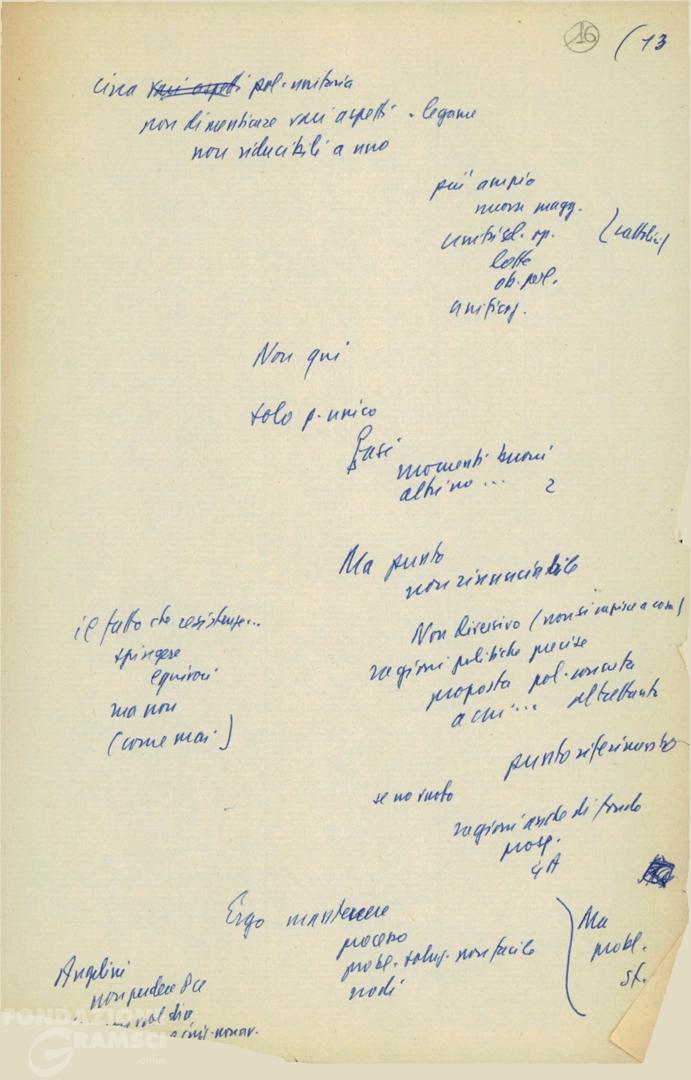 16 (13
circa vari aspetti pol. unitaria
non dimenticare vari aspetti - legame
non riducibili a uno
più ampio
nuova magg.
unità sl. op. (cattolici)
lotte
ob. pol.
unificaz.
Non qui
solo p. unico
Fasi
momenti buoni
altri no ... 2
Ma punto
non rinunciabile
il fatto che resistenze...
spingere
equivoci
ma non
(come mai)
Non diversivo (non si capisce a cosa)
ragioni politiche precise
proposta pol. concreta
a chi ... altrettanto
punto riferimento
se no vuoto
ragioni anche di fondo
prosp.
Ergo mantenere
processo
probl. soluz. non facile
nodi
Ma
probl.
st.
Angelini
non perdere
FONDAZIONE
GRAMSCI